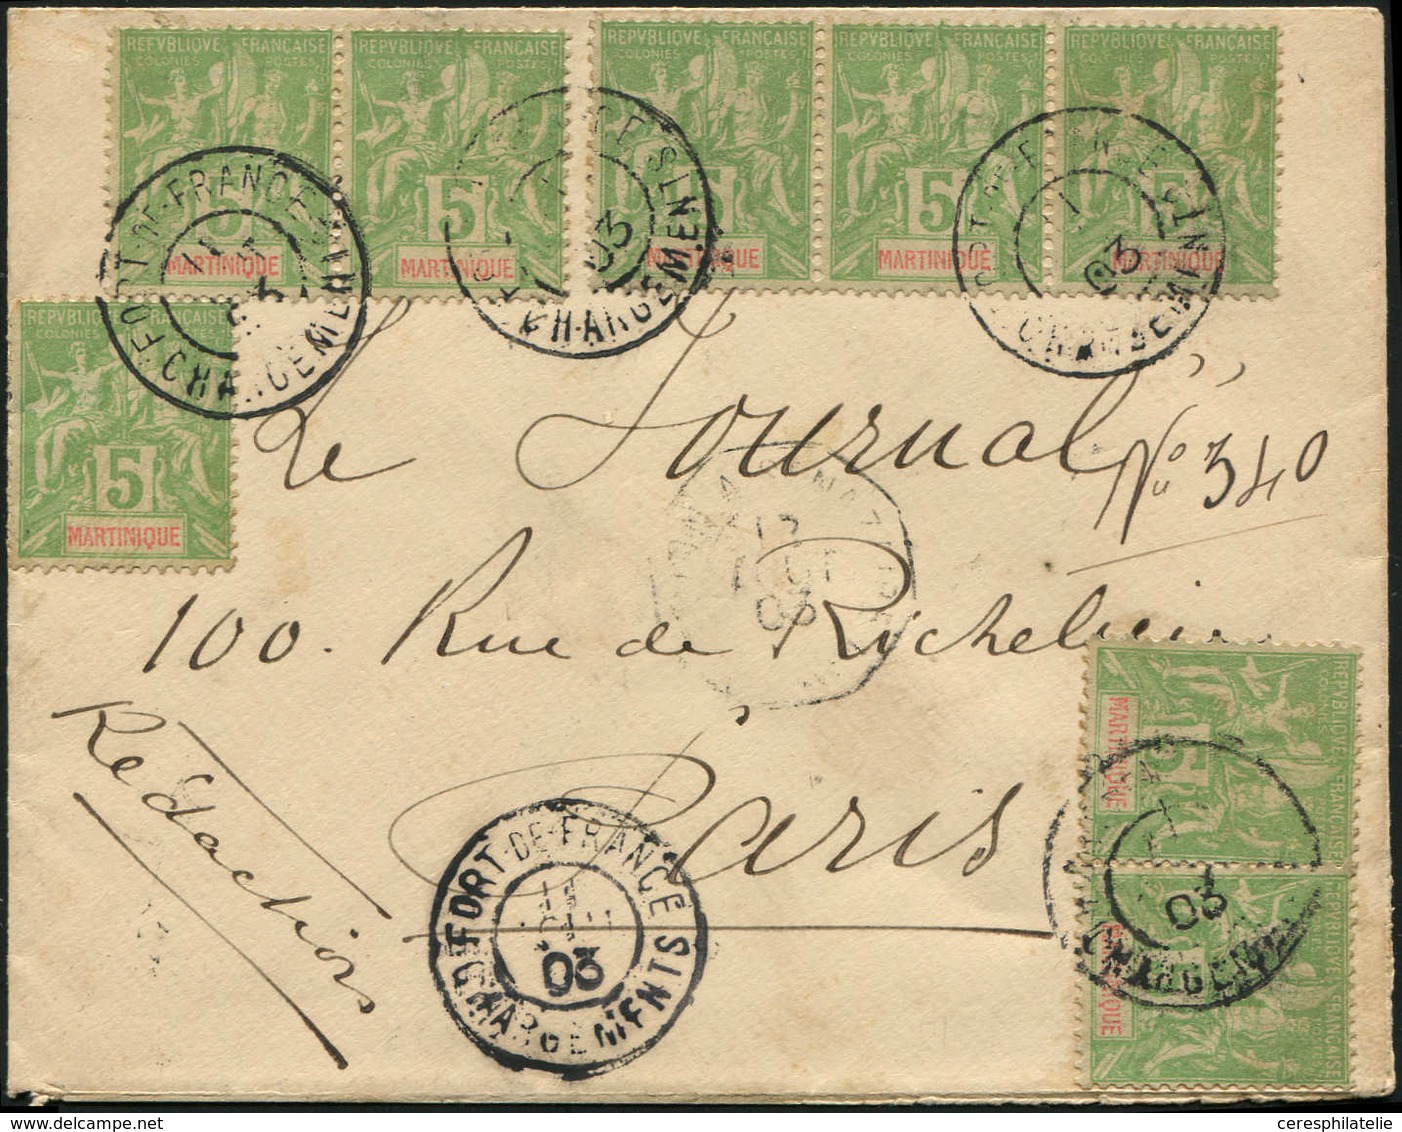 REPVBLIQVE FRANÇAISE REPVBLIQVE FRANÇAISE REPVBLIQVE FRANÇAISE REPVBLIQVE FRANÇAISE REPVBLIQVE FRANÇAISE
COLONIES POSTES COLONIES POSTES COLONIES POSTES COLONIES POSTES COLONIES POSTES
5 5 5 5 5
MARTINIQUE MARTINIQUE MARTINIQUE MARTINIQUE MARTINIQUE
FORT-DE-FRANCE CHARGEMENTS
03
CHARGEMENTS
03
CHARGEMENTS
REPVBLIQVE FRANÇAISE
COLONIES POSTES
5
MARTINIQUE
Le Journal"
No 340
12
AOUT
03
100. Rue de Richelieu
Paris
Rédaction
FORT-DE-FRANCE
03
CHARGEMENTS
REPVBLIQVE FRANÇAISE
5
MARTINIQUE
REPVBLIQVE FRANÇAISE
MARTINIQUE
03
CHARGEMENTS
ceresphilatelie